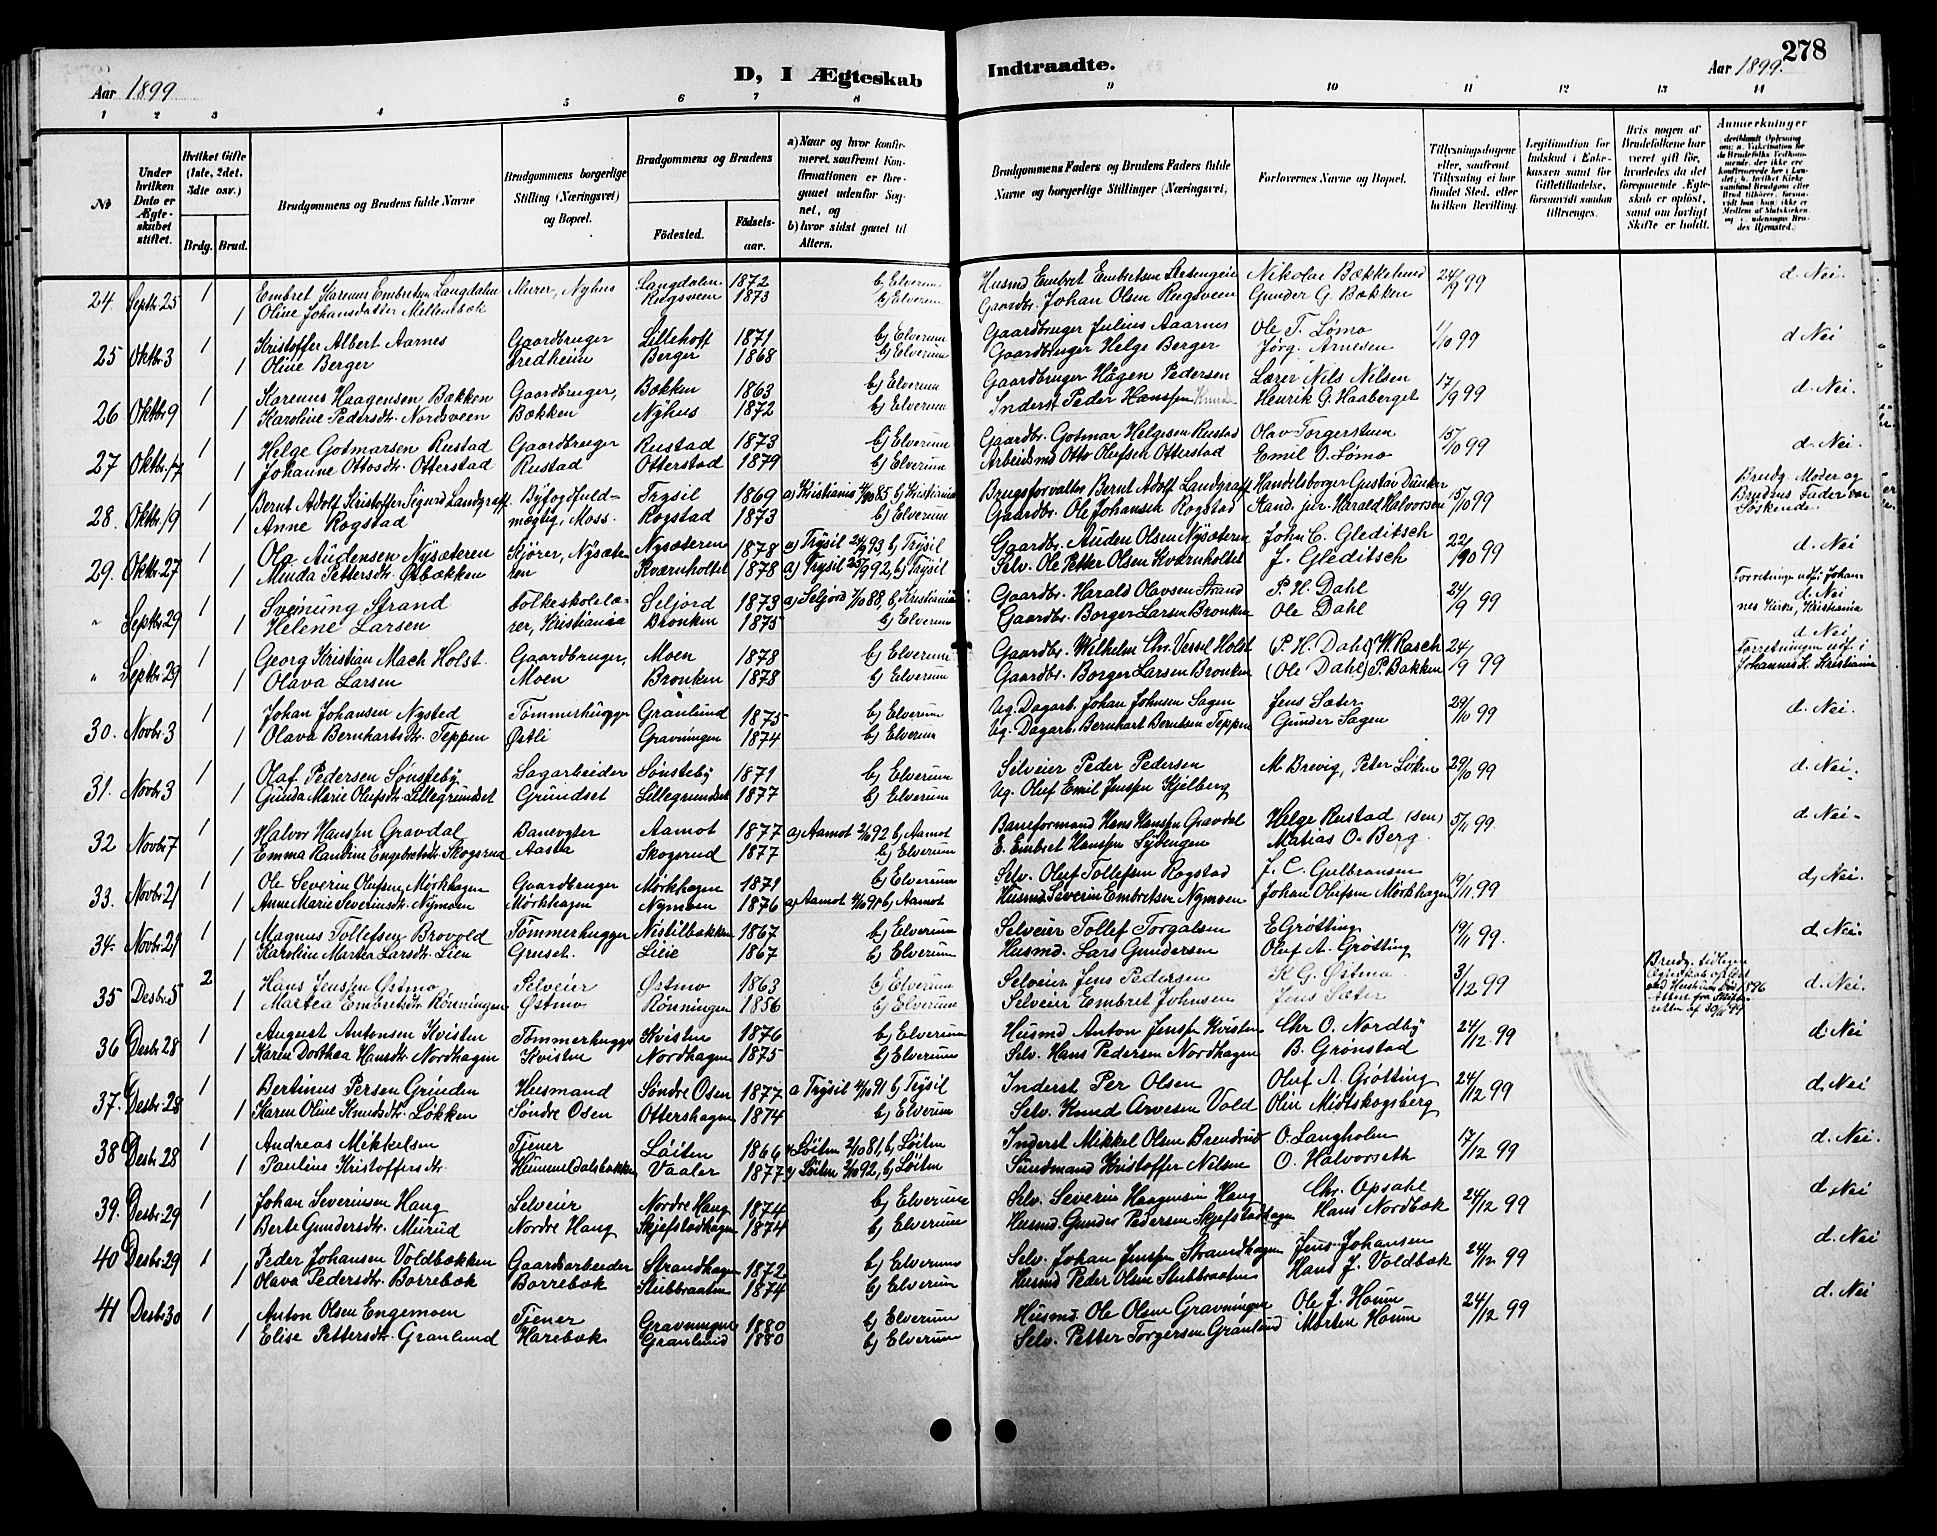 278
Aar 1899
D, I Ægteskab
Indtraadte.
Aar 1899.
1 2 3 4 5 6 7 8 9 10 11 12 13 14
No
Under hvilken Dato er Ægteskabet stiftet.
Hvilket Gifte (1ste, 2det, 3die osv.)
Brdg. Brud.
Brudgommens og Brudens fulde Navne
Brudgommens borgerlige Stilling (Næringsvei) og Bopæl.
Brudgommens og Brudens
Födested. Födselsaar.
a) Naar og hvor konfirmeret, saafremt Konfirmationen er foregaaet udenfor Sognet, og
b) hvor sidst gaaet til Alters.
Brudgommens Faders og Brudens Faders fulde Navne og borgerlige Stillinger (Næringsvei)
Forlovernes Navne og Bopæl.
Tillysningsdagene eller, saafremt Tillysning ei har fundet Sted, efter hvilken Bevilling.
Legitimation for Indskud i Enkekassen samt for Giftetilladelse, forsaavidt saadan tiltrænges.
Hvis nogen af Brudefolkene har været gift før, hvorledes da det foregaaende Ægteskab er opløst, samt om lovligt Skifte er holdt.
Anmærkninger
24. Septbr 25 1 Embret Karenus Embretsen Langdalen Murer, Nyhus Langdalen 1872 b) Elverum Husmd Embret Embretsen Nikolai Bækkelund 24/9 99 d. Nei
1 Oline Johansdatter Mellembæk Rugsveen 1873 b) Elverum Gaardbr. Johan Olsen Rugsveen Gunder G. Bækken
25 Oktbr 3 1 Kristoffer Albert Aarnes Gaardbruger Lillehoff 1871 b) Elverum Gaardbruger Julius Aarnes Ole T. Lømo 1/10 99 d. Nei
1 Oline Berger Fredheim Berger 1868 b) Elverum Gaardbruger Helge Berger Jörg. Arnesen
26 Oktbr 9 1 Karenus Haagensen Bækken Gaardbruger, Bækken 1863 b) Elverum Gaardbruger Hågen Pedersen Lærer Nils Nilsen 17/9 99 d. Nei.
1 Karoline Pedersdtr. Nordsveen Bækken Nyhus 1872 b) Elverum Inderst Peder Hanssen Henrik G. Haaberget
27 Oktbr. 17 1 Helge Gotmarsen Rustad Gaardbruger Rustad 1873 b) Elverum Gaardbr. Gotmar Helgesen Rustad Olav Torgerstuen 15/10 99 d. Nei.
1 Johanne Ottosdtr. Otterstad Rustad Otterstad 1879 b) Elverum Arbeidsmd Otto Olufsen Otterstad Emil O. Lømo
28. Oktbr. 19 1 Bernt Adolf Kristoffer Sigurd Landgraff Byfogdfuld- Trysil 1869 a) Kristiania 4/10 85 b) Kristiania Brugsforvalter Bernt Adolf Landgraff Handelsborger Gustav Dunker 15/10 99 Brudg. Moder og Brudens Fader var Søskende.
1 Anne Rogstad mægtig, Moss. Rogstad 1873 b) Elverum Gaardbr. Ole Johansen Rogstad Kand. jur. Harald Halvorsen
29. Oktbr. 27 1 Ola Audensen Nysæteren Kjører, Nysæte- Nysæteren 1878 a) Trysil 24/9 93, b) Trysil Gaardbr. Auden Olsen Nysæteren John C. Gleditsch 22/10 99 d. Nei
1 Minda Pettersdtr. Østbækken ren Kværnholtet 1878 a) Trysil 25/9 92, b) Trysil Selv. Ole Petter Olsen Kværnholtet J. Gleditsch
" Septbr 29 1 Sveinung Strand Folkeskolelæ- Seljord 1873 a) Seljord 7/10 88, b) Kristiania Gaardbr. Harald Olavsen Strand P. H. Dahl 24/9 99 Forretningen udf. i Johannes Kirke, Kristiania d. Nei
1 Helene Larsen rer, Kristiania Bronken 1875 b) Elverum Gaardbr. Borger Larsen Bronken Ole Dahl
" Septbr 29 1 Georg Kristian Mach Holst. Gaardbruger, Moen 1878 b) Elverum Gaardbr. Wilhelm Chr. Vessel Holst (P. H. Dahl) W. Rasch 24/9 99 d. Nei Forretningen udf. i Johannes K. Kristiania
1 Olava Larsen Moen Bronken 1878 b) Elverum Gaardbr. Borger Larsen Bronken (Ole Dahl) P. Bakken
30. Novbr. 3 1 Johan Johansen Nysted Tømmerhugger Granlund 1875 b) Elverum Ug. Dagarb. Johan Johnsen Sagen Jens Sæter 29/10 99 d. Nei.
1 Olava Bernhartsdtr. Teppen Østli Gravningen 1874 b) Elverum Ug. Dagarb. Bernhart Berntsen Teppen Gunder Sagen
31. Novbr. 3 1 Olaf Pedersen Sønsteby Sagarbeider Sønsteby 1871 b) Elverum Selveier Peder Pedersen M. Brevig, Peter Løken 29/10 99 d. Nei.
1 Gunda Marie Olufsdtr. Lillegrundset Grundset Lillegrundset 1877 b) Elverum Ug. Oluf Emil Jenssen Kjelberg
32 Novbr. 7 1 Halvor Hanssen Gravdal Banevogter Aamot 1877 a) Aamot 2/10 92 b) Aamot Baneformand Hans Hanssen Gravdal Helge Rustad (sen) 5/11 99. d. Nei.
1 Emma Randine Engebretsdtr. Skogsrud Aasta Skogsrud 1877 b) Elverum E. Embret Hanssen Matias O. Berg
33. Novbr. 21 1 Ole Severin Olufsen Mørkhagen Gaardbruger Mørkhagen 1871 b) Elverum Selv. Oluf Tollefsen Rogstad J. C. Gulbransen 19/11 99 d, Nei.
1 Anne Marie Severinsdtr. Nymoen Mørkhagen Nymoen 1876 a) Aamot 4/10 90 b) Aamot Husmd. Severin Embretsen Nymoen Johan Olufsen Mørkhagen
34. Novbr. 21 1 Magnus Tollefsen Brovold Tømmerhugger Nistilbækken 1867 b) Elverum Selveier Tollef Torgalsen E Grøtting 19/11 99. d. Nei.
1 Karolin Martea Larsdtr. Lien Grunset. Liie 1867 b) Elverum Husmd. Lars Gundersen Oluf A. Grøtting
35 Desbr. 5 2 Hans Jenssen Østmo Selveier Østmo 1863 b) Elverum Selveier Jens Pedersen K. G. Østmo 3/12 99 d. Nei.
1 Martea Embretsdtr. Rönningen Østmo Rönningen 1856 b) Elverum Selveier Embret Johnsen Jens Sæter
36 Desbr. 28 1 August Antonsen Kvisten Tømmerhugger Kvisten 1876 b) Elverum Husmd Anton Jenssen Kvisten Chr O. Nordby 24/12 99 d. Nei
1 Karen Dorthea Hansdtr. Nordhagen Kvisten Nordhagen 1875 b) Elverum Selv. Hans Pedersen Nordhagen B. Grönstad
37. Desbr. 28 1 Bertinus Persen Grinden Husmand Søndre Osen 1877 a Trysil 4/10 91 b) Trysil Inderst Per Olsen Oluf A. Grøtting 24/12 99 d. Nei
1 Karen Oline Knudsdtr. Løkken Søndre Osen Ottershagen 1874 b) Elverum Selv. Knud Arvesen Vold Olin Midtskogsberg
38 Desbr. 28 1 Andreas Mikkelsen Tjener Löiten 1866 a) Löiten 2/10 81 b) Löiten Inderst Mikkel Olsen Brendrud O. Langholm 17/12 99 d. Nei.
1 Pauline Kristoffersdtr. Himmeldalsbakken Vaaler 1877 a) Löiten 2/10 92, b) Löiten Sundmand Kristoffer Nilsen O. Halvorseth
39. Desbr. 29 1 Johan Severinsen Haug Selveier Nordre Haug 1874 b) Elverum Selv. Severin Haagensen Haug Chr. Opsahl 24/12 99 d, Nei
1 Berte Gundersdtr. Murud Nordre Haug Skjefstadhagen 1874 b) Elverum Husmd. Gunder Pedersen Skjefstadhagen Hans Nordbæk
40 Desbr. 29 1 Peder Johansen Voldbækken Gaardsarbeider Strandhagen 1872 b) Elverum Selv. Johan Jenssen Strandhagen Jens Johansen 24/12 99 d. Nei
1 Olava Pedersdtr. Borrebæk Borrebæk Stubbraaten 1874 b) Elverum Husmd Peder Olsen Stubbraaten Hans J. Voldbæk
41 Desbr 30 1 Anton Olsen Engemoen Tjener Gravningen 1880 b) Elverum Husmd. Ole Olsen Gravningen Ole J. Houm 24/12 99 d. Nei
1 Elise Pettersdtr. Granlund Harebæk Granlund 1880 b) Elverum Selv. Petter Torgersen Granlund Morten Houm